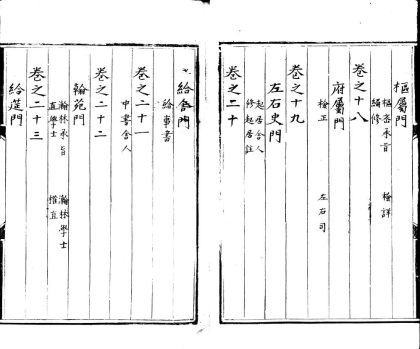 樞屬門
樞密承旨 檢詳
編修
卷之十八
府屬門
檢正 左右司
卷之十九
左右史門
起居舍人
修起居注
卷之二十
給舍門
給事書
卷之二十一
中書舍人
卷之二十二
翰苑門
瀚林承旨 瀚林學士
直學士 權直
卷之二十三
給筵門